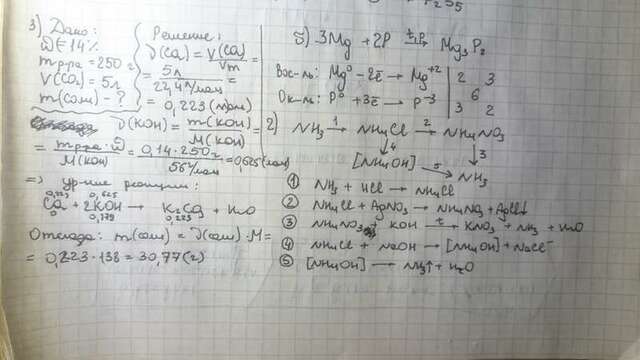 P₂S₅
3) Дано:
ω = 14%
m р-ра = 250 г
V(CO₂) = 5л
m(соли) - ?
Решение:
ν(CO₂) = V(CO₂)/Vm =
= 5л / 22,4 л/моль =
= 0,223 (моль)
ν(KOH) = m(KOH)/M(KOH) =
= m р-ра · ω / M(KOH) = 0,14 · 250г / 56 г/моль = 0,625 (моль)
=> ур-ние реакции:
0,223 0,625
CO₂ + 2KOH → K₂CO₃ + H₂O
0 0,179 0,223
Отсюда: m(соли) = ν(соли) · M =
= 0,223 · 138 = 30,77 (г)
5) 3Mg + 2P → Mg₃P₂
Вос-ль: Mg⁰ - 2ē → Mg⁺² | 2 3
6
Ок-ль: P⁰ + 3ē → P⁻³ | 3 2
2) NH₃ →¹ NH₄Cl →² NH₄NO₃
↓4 ↓3
[NH₄OH] →⁵ NH₃
① NH₃ + HCl → NH₄Cl
② NH₄Cl + AgNO₃ → NH₄NO₃ + AgCl↓
③ NH₄NO₃ + KOH →ᵗ KNO₃ + NH₃ + H₂O
④ NH₄Cl + NaOH → [NH₄OH] + NaCl
⑤ [NH₄OH] → NH₃↑ + H₂O